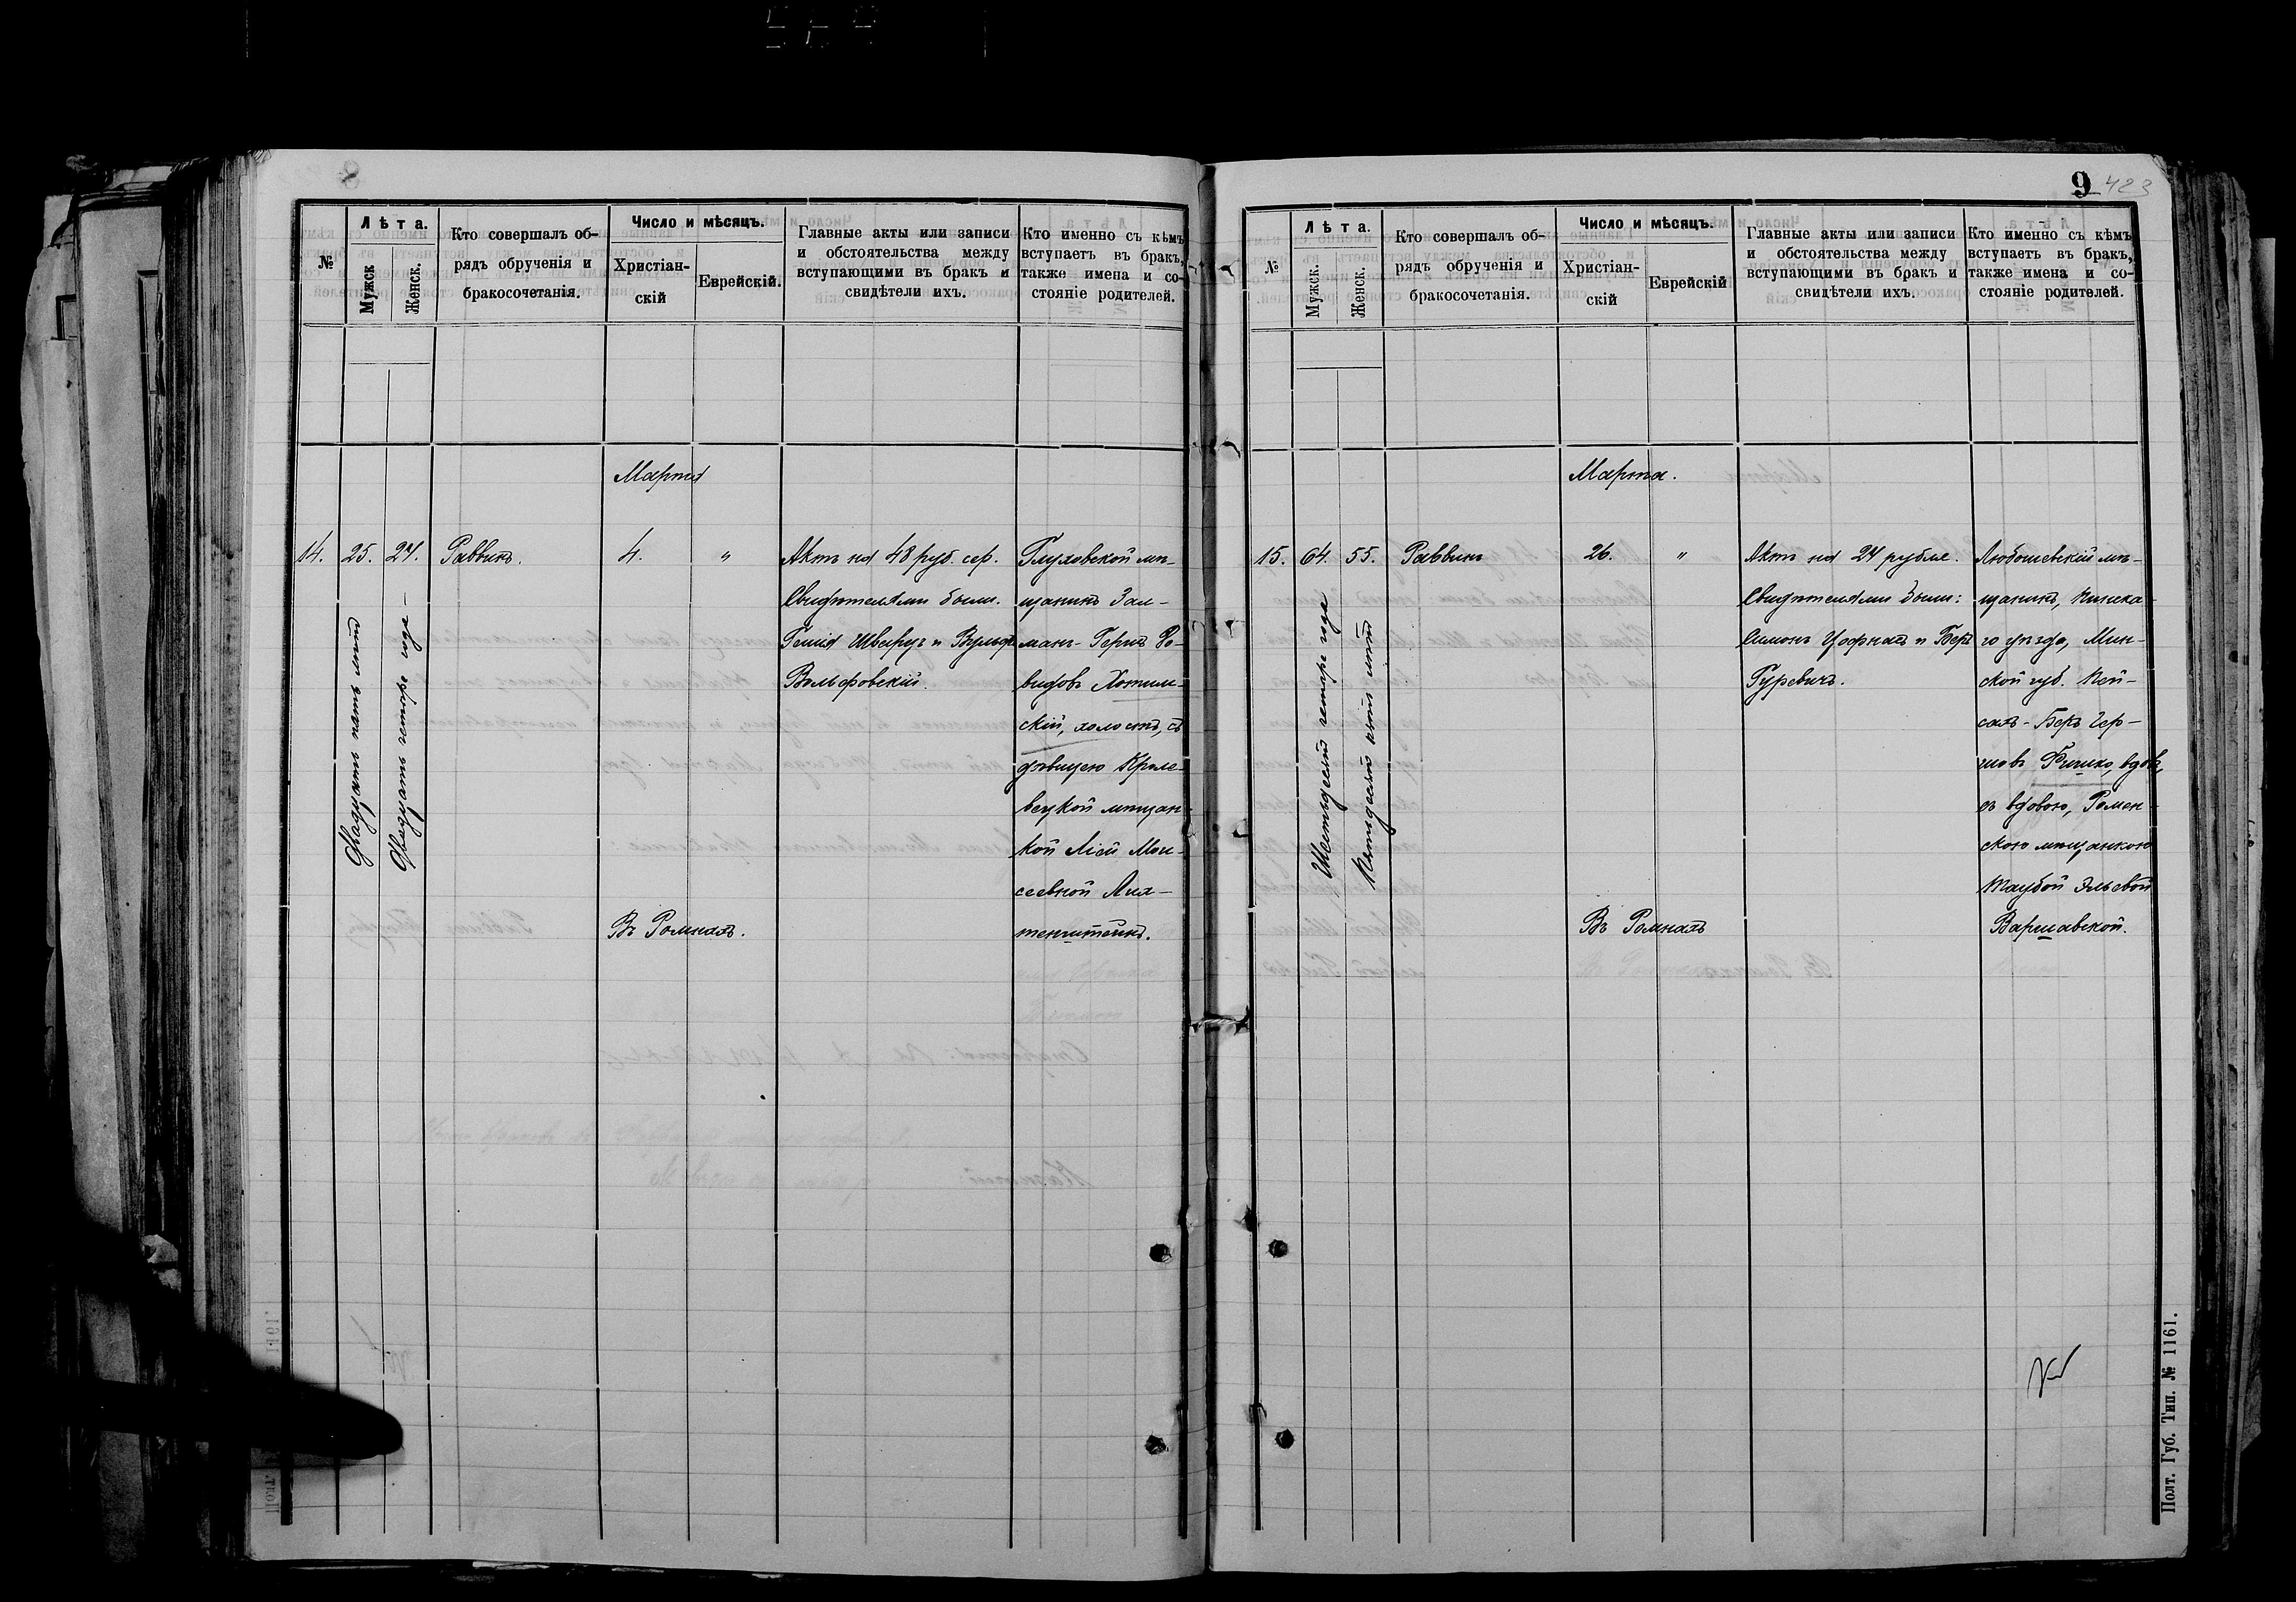 №
Лѣта.
Мужск
Женск.
Кто совершалъ об-
рядъ обрученія и
бракосочетанія.
Число и мѣсяцъ.
Христіан-
скій
Еврейскій.
Главные акты или записи
и обстоятельства между
вступающими въ бракъ и
свидѣтели ихъ.
Кто именно съ кѣмъ
вступаетъ въ бракъ,
также имена и со-
стояніе родителей.
Марта
14.
25.
24.
Двадцать пять лѣтъ
Двадцать четыре года —
Раввинъ.
4.
"
Въ Ромнахъ.
Актъ на 48 руб. сер.
Свидѣтелями были.
Гешель Шварцъ и Вульфъ
Вольфовскій.
Глуховской мѣ-
щанинъ Зал-
манъ-Герцъ До-
видовъ Хотим-
скій, холостъ, съ
дѣвицею Кроле-
вецкой мѣщан-
кой Лiей Мои-
сеевной Лих-
тенштейнъ.
9 423
№
Лѣта.
Мужск.
Женск.
Кто совершалъ об-
рядъ обрученія и
бракосочетанія.
Число и мѣсяцъ.
Христіан-
скій
Еврейскій
Главные акты или записи
и обстоятельства между
вступающими въ бракъ и
свидѣтели ихъ.
Кто именно съ кѣмъ
вступаетъ въ бракъ,
также имена и со-
стояніе родителей.
Марта.
15.
64.
55.
Шестьдесятъ четыре года
Пятьдесятъ пять лѣтъ
Раввинъ
26.
"
Въ Ромнахъ
Актъ на 24 рубля.
Свидѣтелями были:
Симонъ Цофнасъ и Беръ
Гуревичъ.
Любошевскій мѣ-
щанинъ, Пинска-
го уѣзда, Мин-
ской губ. Кей-
сахъ-Беръ Гер-
шовъ Фишко, вдов.,
съ вдовою, Ромен-
скою мѣщанкою
Таубой Эльевой
Варшавской.
Полт. Губ. Тип. № 1161.